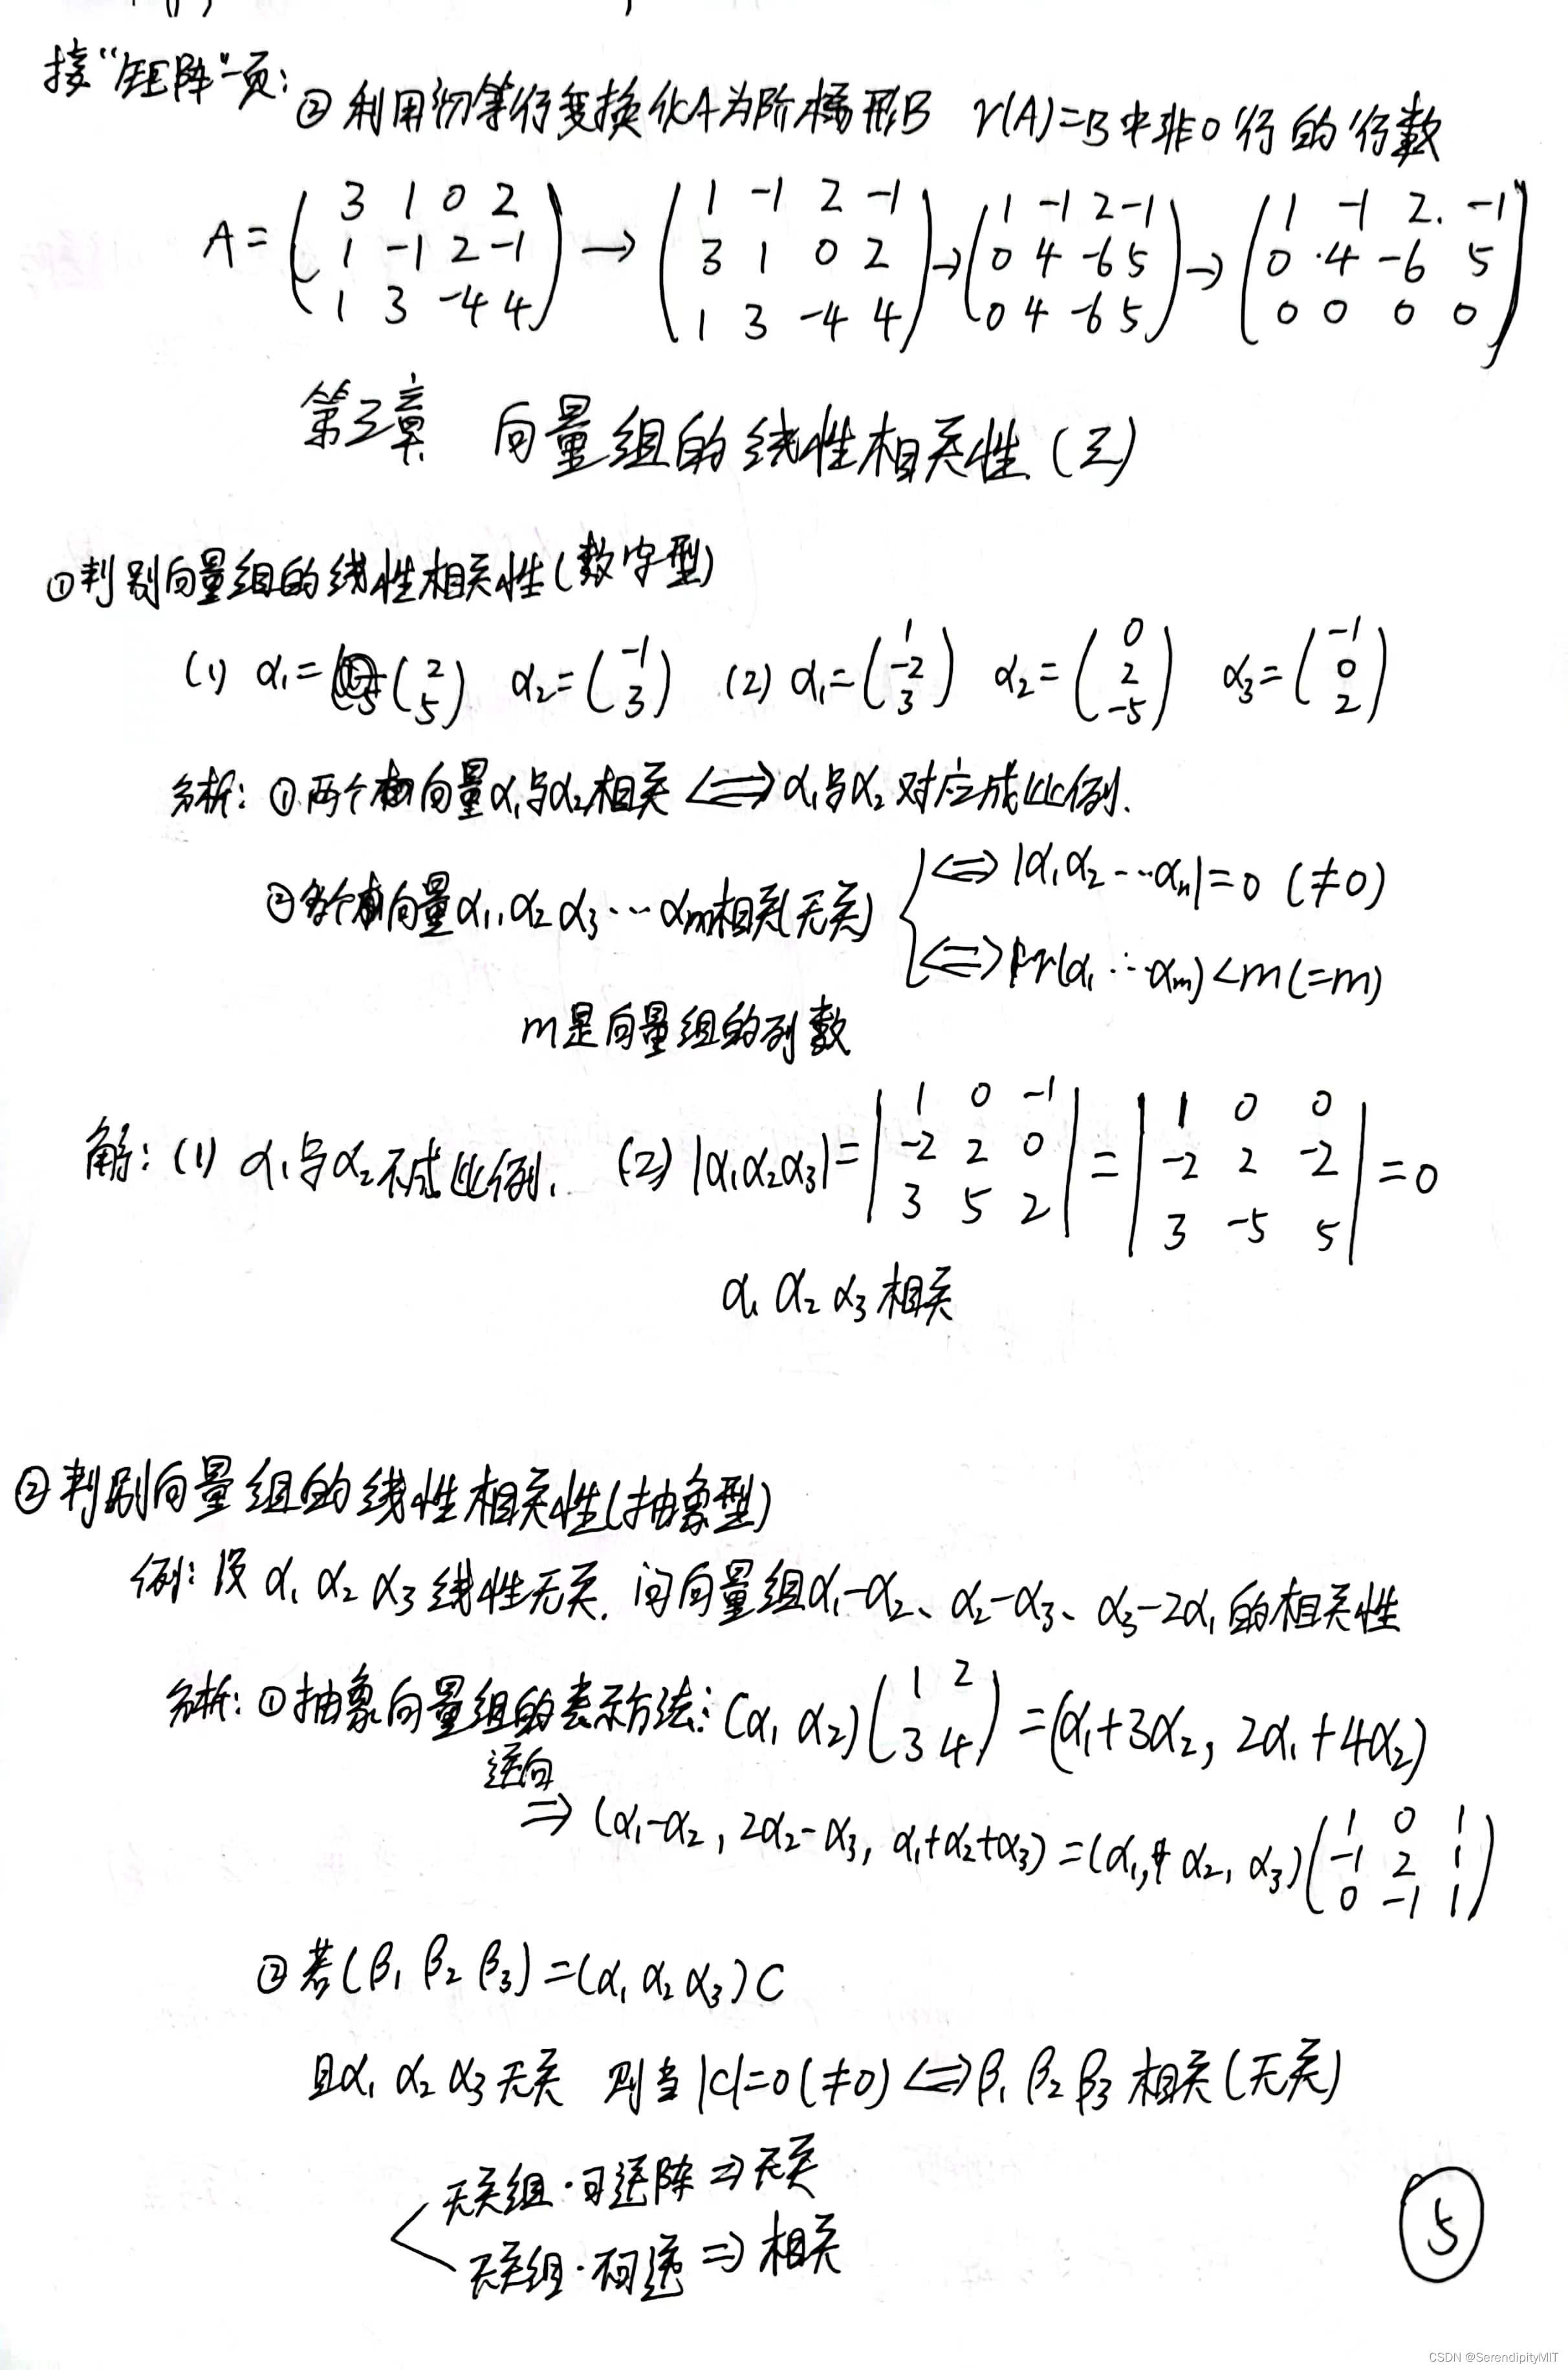 接“矩阵”一页：
② 利用初等行变换化A为阶梯形B r(A)=B中非0行的行数
A = ( 3 1 0 2 ; 1 -1 2 -1 ; 1 3 -4 4 ) → ( 1 -1 2 -1 ; 3 1 0 2 ; 1 3 -4 4 ) → ( 1 -1 2 -1 ; 0 4 -6 5 ; 0 4 -6 5 ) → ( 1 -1 2 -1 ; 0 4 -6 5 ; 0 0 0 0 )
第三章 向量组的线性相关性（三）
①判别向量组的线性相关性（数字型）
(1) α₁=( 2 ; 5 ) α₂=( -1 ; 3 ) (2) α₁=( 1 ; -2 ; 3 ) α₂=( 0 ; 2 ; -5 ) α₃=( -1 ; 0 ; 2 )
分析：①两个向量α₁与α₂相关 ⇔ α₁与α₂对应成比例.
②多个向量α₁,α₂ α₃…αm相关(无关) { ⇔ |α₁α₂…αn|=0 (≠0)
⇔ r(α₁…αm)<m(=m)
m是向量组的列数
解：(1) α₁与α₂不成比例. (2) |α₁α₂α₃|=| 1 0 -1 ; -2 2 0 ; 3 5 2 | = | 1 0 0 ; -2 2 -2 ; 3 -5 5 | =0
α₁ α₂ α₃相关
②判别向量组的线性相关性(抽象型)
例：设α₁ α₂ α₃线性无关. 问向量组α₁-α₂、α₂-α₃、α₃-2α₁的相关性
分析：①抽象向量组的表示方法：(α₁ α₂)( 1 2 ; 3 4 ) =(α₁+3α₂, 2α₁+4α₂)
逆向
⇒ (α₁-α₂, 2α₂-α₃, α₁+α₂+α₃)=(α₁, α₂, α₃)( 1 0 1 ; -1 2 1 ; 0 -1 1 )
②若(β₁ β₂ β₃)=(α₁ α₂ α₃)C
且α₁ α₂ α₃无关 则当|C|=0(≠0)⇔β₁ β₂ β₃相关(无关)
无关组·可逆阵⇒无关
无关组·不可逆⇒相关
5
CSDN @SerendipityMIT